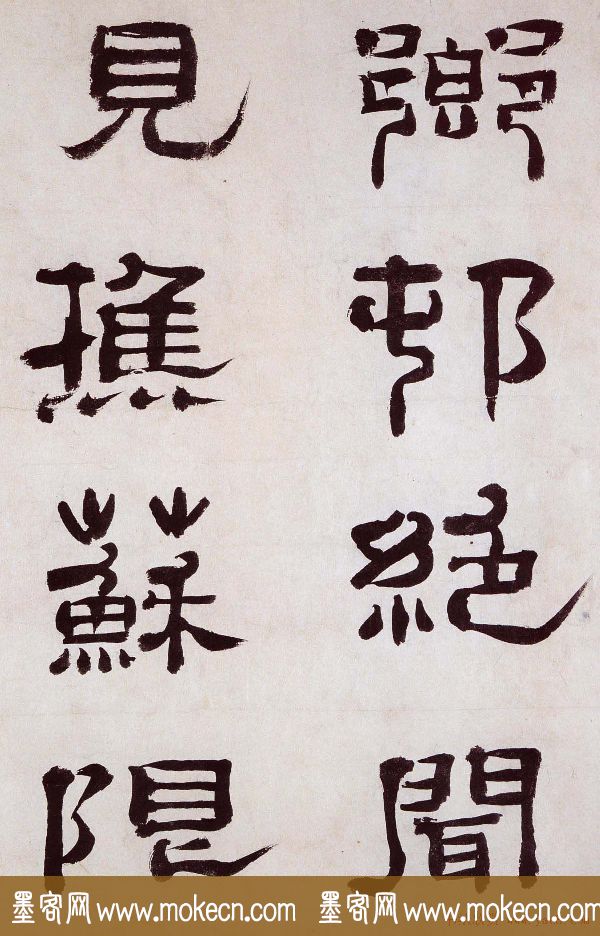 鄉邨絶聞
見樵蘇限
墨客网 www.mokecn.com 墨客网 www.mokecn.com